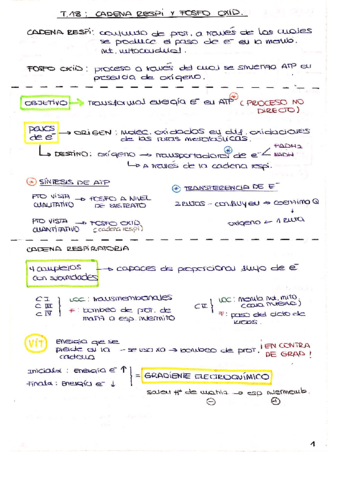 T.18: CADENA RESPI y FOSFO OXID.
CADENA RESPI: conjunto de prot. a través de las cuales
se produce el paso de e⁻ en la memb.
mt. mitocondrial.
FOSFO OXID: proceso a través del cual se sintetiza ATP en
presencia de oxígeno.
OBJETIVO → Transformar energía e⁻ en ATP (PROCESO NO
DIRECTO)
pares
de e⁻ → ORIGEN: molec. oxidados en dif. oxidaciones
de las rutas metabólicas.
↳ DESTINO: oxígeno → transportadores de e⁻ < FADH2
NADH
↳ A través de la cadena respi.
SÍNTESIS DE ATP
PTO VISTA → FOSFO A NIVEL
CUALITATIVO DE SUSTRATO
PTO VISTA → FOSFO OXID.
CUANTITATIVO (cadena respi)
TRANSFERENCIA DE E⁻
2 RUTAS - confluyen → coenzima Q
↓
oxígeno ← 1 RUTA
CADENA RESPIRATORIA
4 complejos
con subunidades → capaces de proporcionar flujo de e⁻
C I
C III
C IV
LOC: transmembranales
F: bombeo de prot. de
matriz a esp intermito
C II
LOC: memb int. mito.
(cara interna)
F: paso del ciclo de
Krebs.
VIT
energía que se
pierde en la - se usa xa → bombeo de prot. ¡EN CONTRA
cadena DE GRAD!
Inicial: energía e⁻ ↑
Final: energía e⁻ ↓ = GRADIENTE ELECTROQUÍMICO
salen H⁺ de matriz → esp intermemb.
⊖ ⊕
1